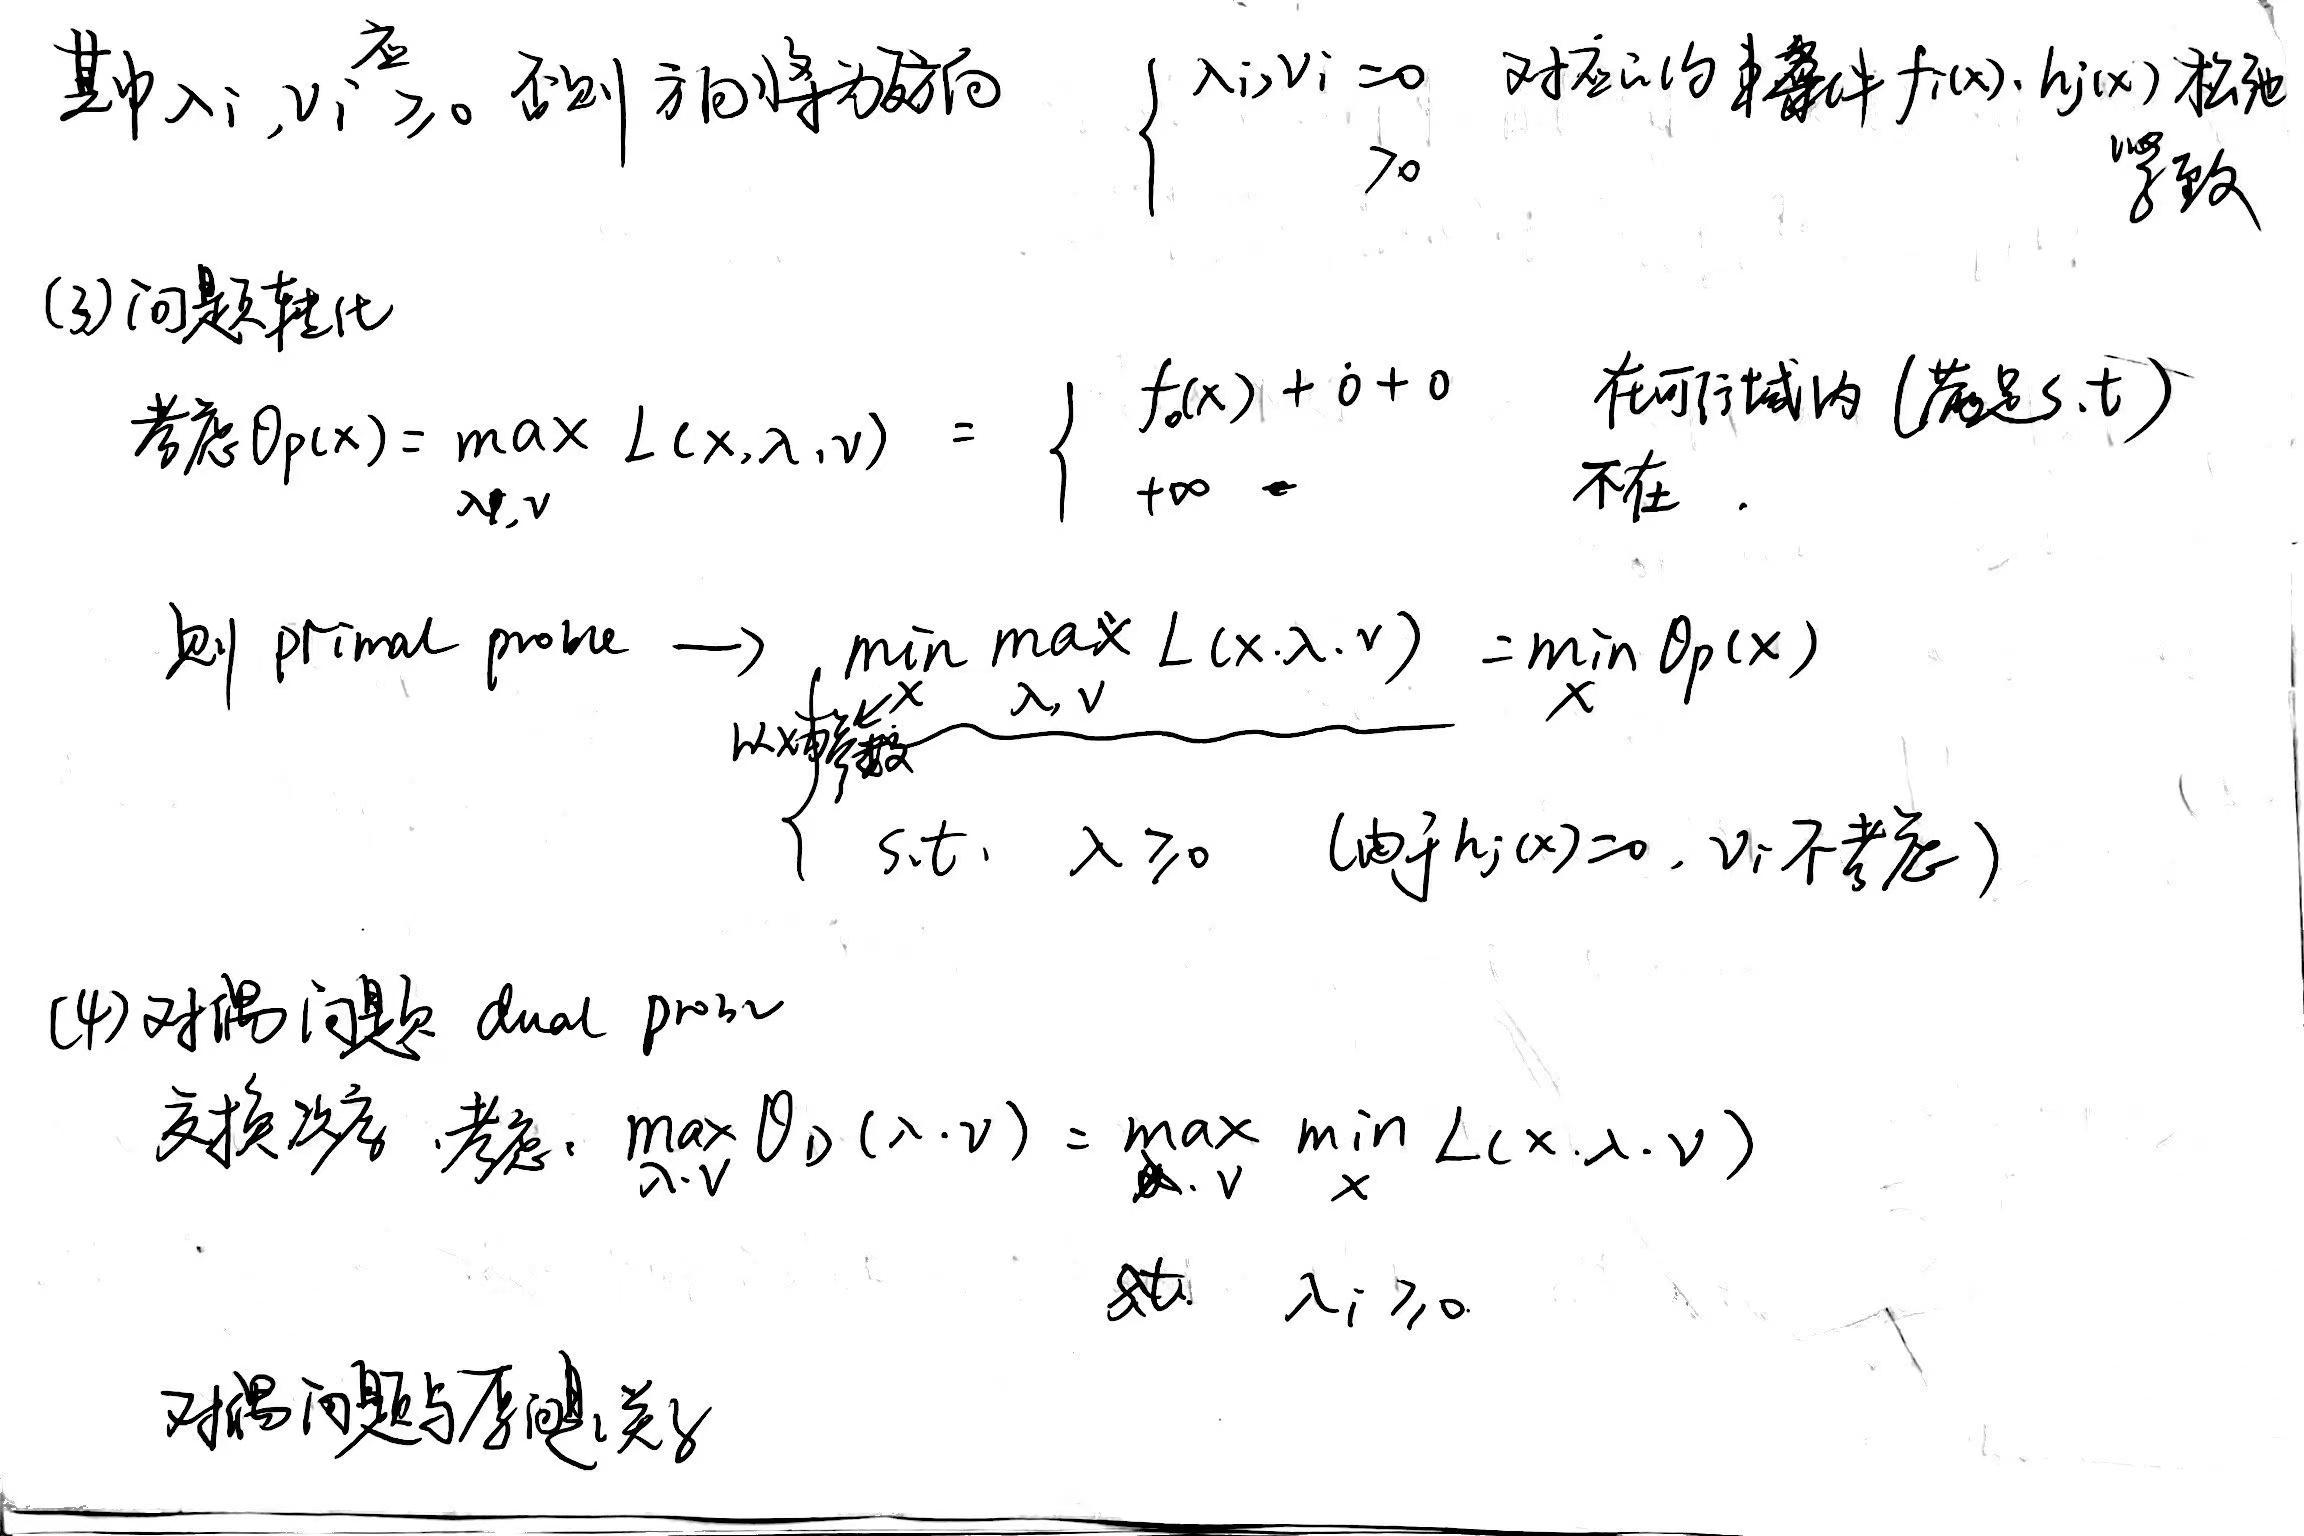 其中 λi, νi 应 ≥0 否则方向将为反方向 { λi, νi =0 对应的约束条件 fi(x), hj(x) 松弛
>0 紧致
(3) 问题转化
考虑 θp(x) = max L(x, λ, ν) = { f₀(x) + 0 + 0 在可行域内 (满足 s.t)
λ, ν +∞ 不在.
则 primal proble → min max L(x. λ. ν) = min θp(x)
x λ, ν x
以x为参数
s.t. λ ≥0 (由于 hj(x)=0, νi 不考虑)
(4) 对偶问题 dual
交换次序, 考虑. max θD(λ. ν) = max min L(x. λ. ν)
λ. ν ν x
s.t. λi ≥0.
对偶问题与原问题关系